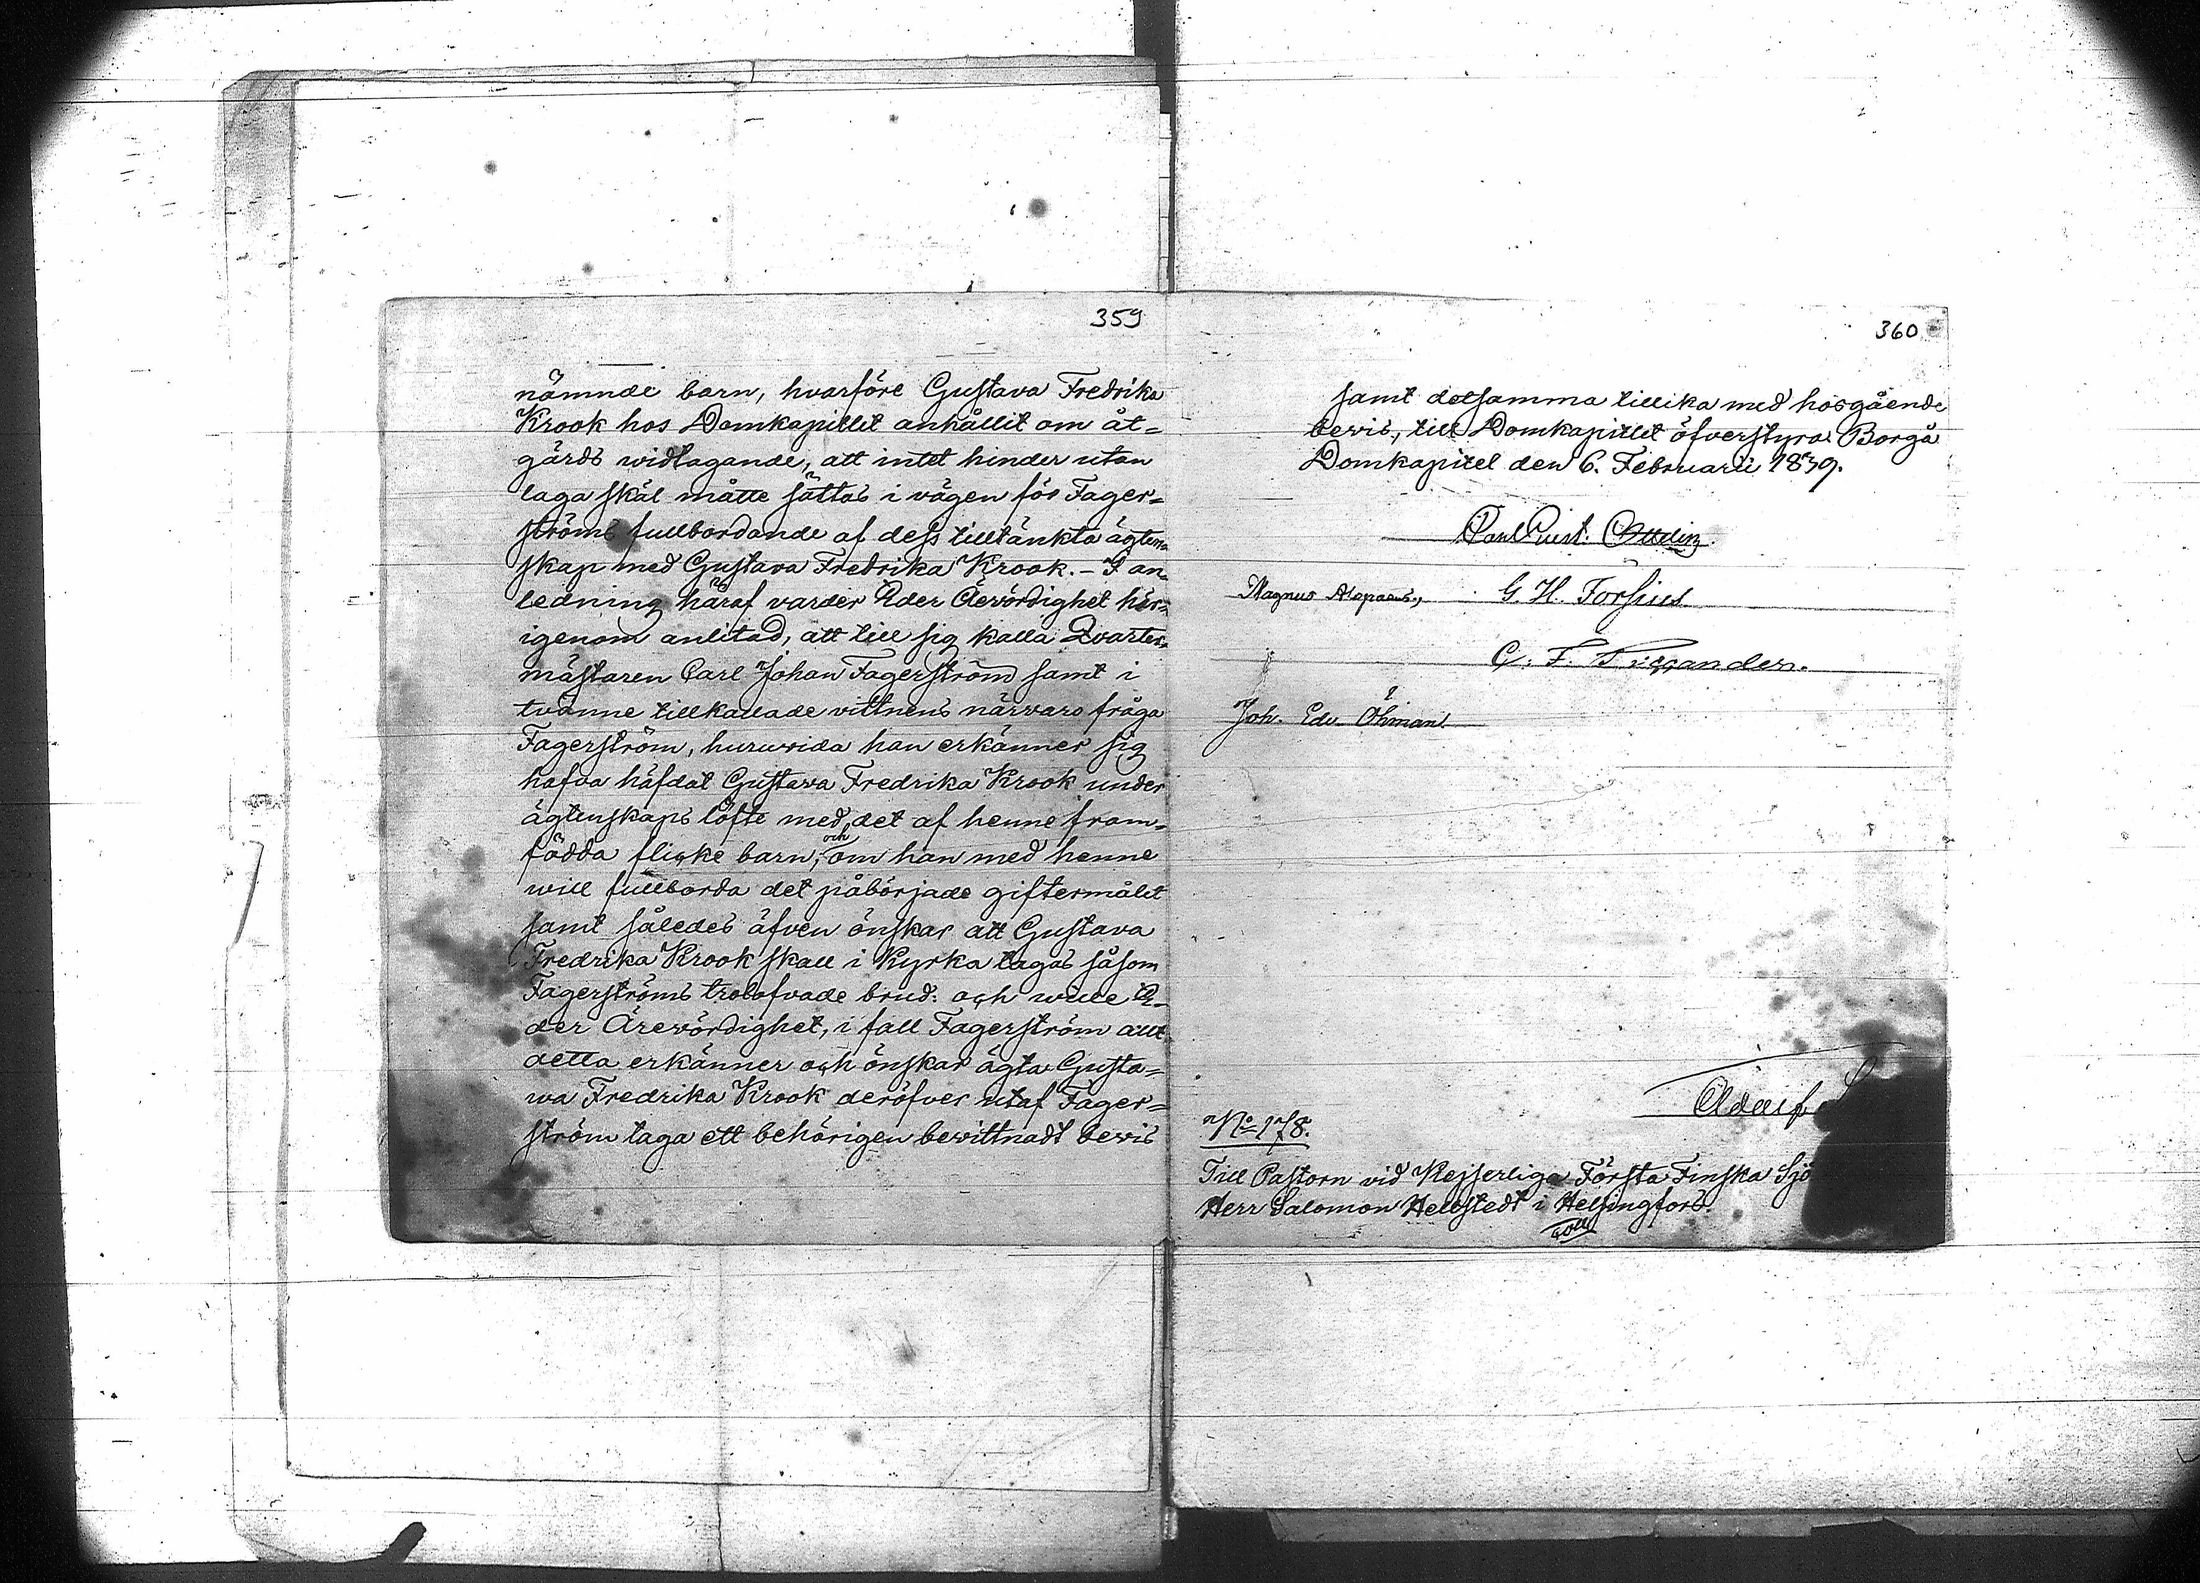 359
nämnde barn, hvarföre Gustava Fredrika
Krook hos Domkapitlet anhållit om åt=
gärds widtagande, att intet hinder utan
laga skäl måtte sättas i vägen för Fager=
ströms fullbordande af dess tilltänkta ägten=
skap med Gustava Fredrika Krook. – I an=
ledning häraf varder Eder Ärevördighet här=
igenom anlitad, att till sig kalla Qvarter=
mästaren Carl Johan Fagerström samt i
tvänne tillkallade vittnens närvaro fråga
Fagerström, huruvida han erkänner sig
hafva häfdat Gustava Fredrika Krook under
ägtenskaps löfte med det af henne fram=
födda flicke barn, och om han med henne
will fullborda det påbörjade giftermålet
samt således äfven önskar att Gustava
Fredrika Krook skall i Kyrka tagas såsom
Fagerströms trolofvade brud: och wille E=
der Ärevördighet, i fall Fagerström allt
detta erkänner och önskar ägta Gusta=
wa Fredrika Krook deröfver utaf Fager=
ström taga ett behörigen bevittnadt bevis
360
samt detsamma tillika med hosgående
bevis, till Domkapitlet öfverstyra. Borgå
Domkapitel den 6. Februarii 1839.
Magnus Alopaeus, G. H. Forsius
C. F. Tiggander.
Joh. Edv. Öhman
Adolf
No 178.
Till Pastorn vid Kejserliga Första Finska Sjö
Herr Salomon Hellstedt i Helsingfors.